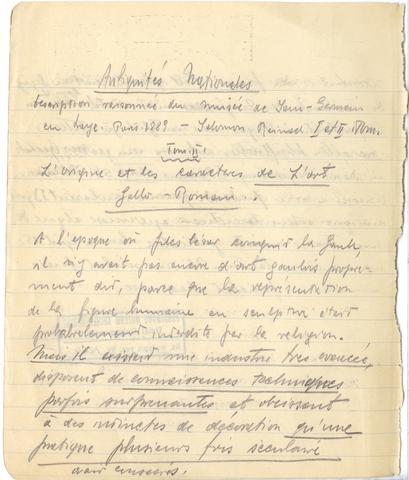 Antiquités Nationales
Description raisonnée du musée de Sain-Germain
en Laye. Paris 1889 – Salomon Reinach I et II Tom.
Tom. II.
L'origine et les caractères de L'art
Gallo-Romain.
A l'epoque où Jules César conquit la Gaule,
il n'y avait pas encore d'art gaulois propre-
ment dit, parce que la représentation
de la figure humaine en sculptur etait
probablement interdite par la religion.
Mais il existait une industrie très avancée,
disposent de connaissences techniques
parfois surprenantes et obeissent
à des instinctes de decoration qu'une
pratique plusieurs fois séculaire
avait consacrés.